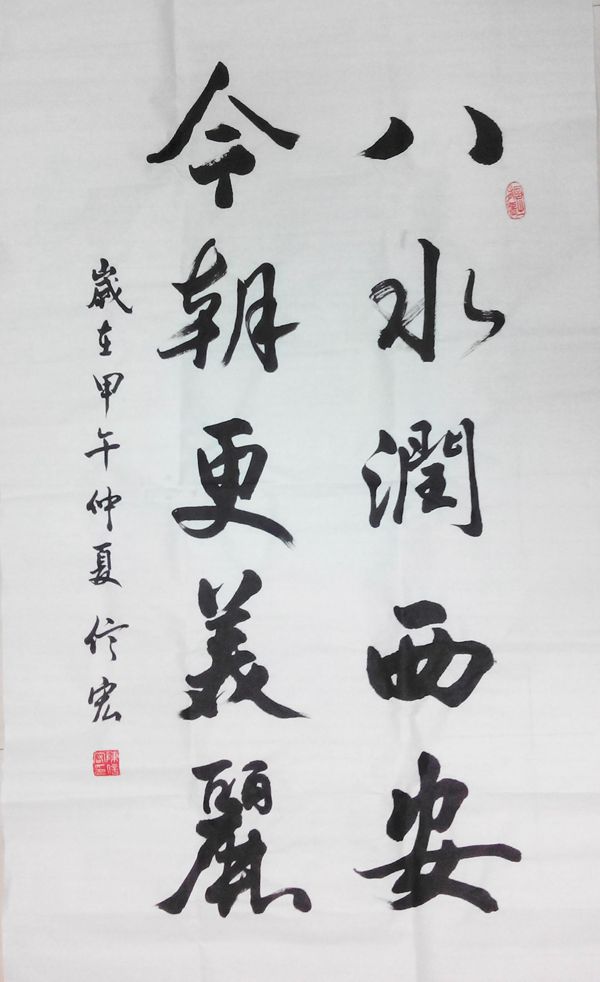 八水潤西安
今朝更美麗
歲在甲午仲夏信宏